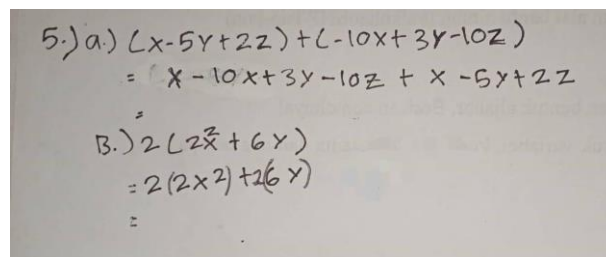 5.) a.) (x-5y+2z)+(-10x+3y-10z)
= x-10x+3y-10z + x-5y+2z
=
B.) 2(2x²+6y)
=2(2x2)+2(6y)
=